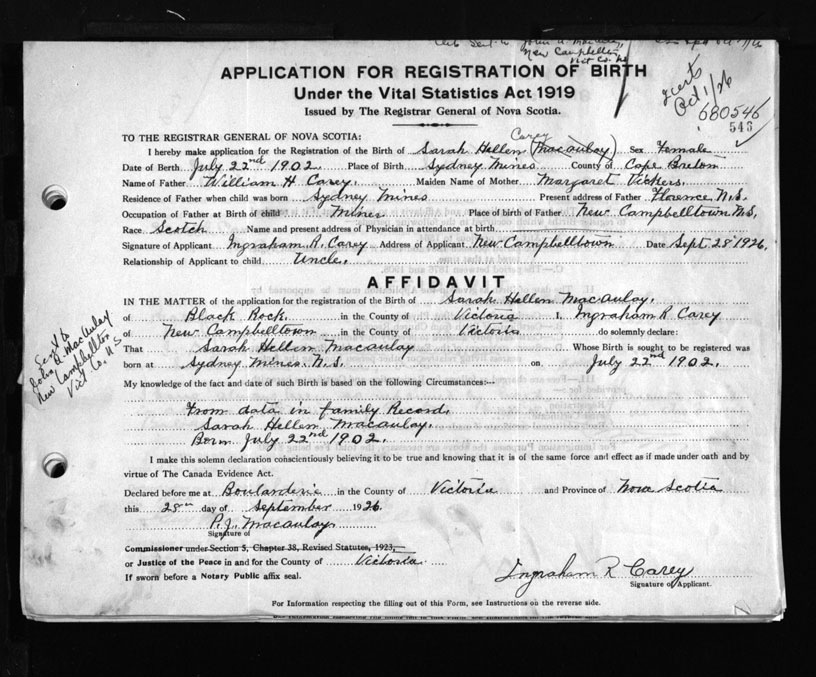 John A. Macaulay,
New Campbellton
Vict Co. NS
APPLICATION FOR REGISTRATION OF BIRTH
Under the Vital Statistics Act 1919
Issued by The Registrar General of Nova Scotia.
Oct 1/26
680546
545
TO THE REGISTRAR GENERAL OF NOVA SCOTIA:
Carey
I hereby make application for the Registration of the Birth of Sarah Hellen (Macaulay) Sex Female
Date of Berth July 22nd 1902. Place of Birth Sydney Mines County of Cape Breton
Name of Father William H Carey. Maiden Name of Mother Margaret Vickers.
Residence of Father when child was born Sydney Mines Present address of Father Florence N.S.
Occupation of Father at Birth of child Miner Place of birth of Father New Campbelltown N.S.
Race Scotch Name and present address of Physician in attendance at birth
Signature of Applicant Ingraham R. Carey Address of Applicant New Campbelltown Date Sept. 28 1926.
Relationship of Applicant to child Uncle.
AFFIDAVIT
IN THE MATTER of the application for the registration of the Birth of Sarah Hellen Macaulay.
of Black Rock in the County of Victoria I, Ingraham R Carey
of New Campbelltown in the County of Victoria do solemnly declare:
That Sarah Hellen Macaulay Whose Birth is sought to be registered was
born at Sydney Mines N.S. on July 22nd 1902.
Sent to
John A. Macaulay
New Campbellton
Vict Co. N.S.
My knowledge of the fact and date of such Birth is based on the following Circumstances:—
From data in family Record.
Sarah Hellen Macaulay.
Born July 22nd 1902.
I make this solemn declaration conscientiously believing it to be true and knowing that it is of the same force and effect as if made under oath and by
virtue of The Canada Evidence Act.
Declared before me at Boulardarie in the County of Victoria and Province of Nova Scotia
this 28th day of September 1926.
P.J. Macaulay
Signature of
Commissioner under Section 5, Chapter 38, Revised Statutes, 1923,
or Justice of the Peace in and for the County of Victoria
If sworn before a Notary Public affix seal.
Ingraham R Carey
Signature of Applicant.
For Information respecting the filling out of this Form, see Instructions on the reverse side.